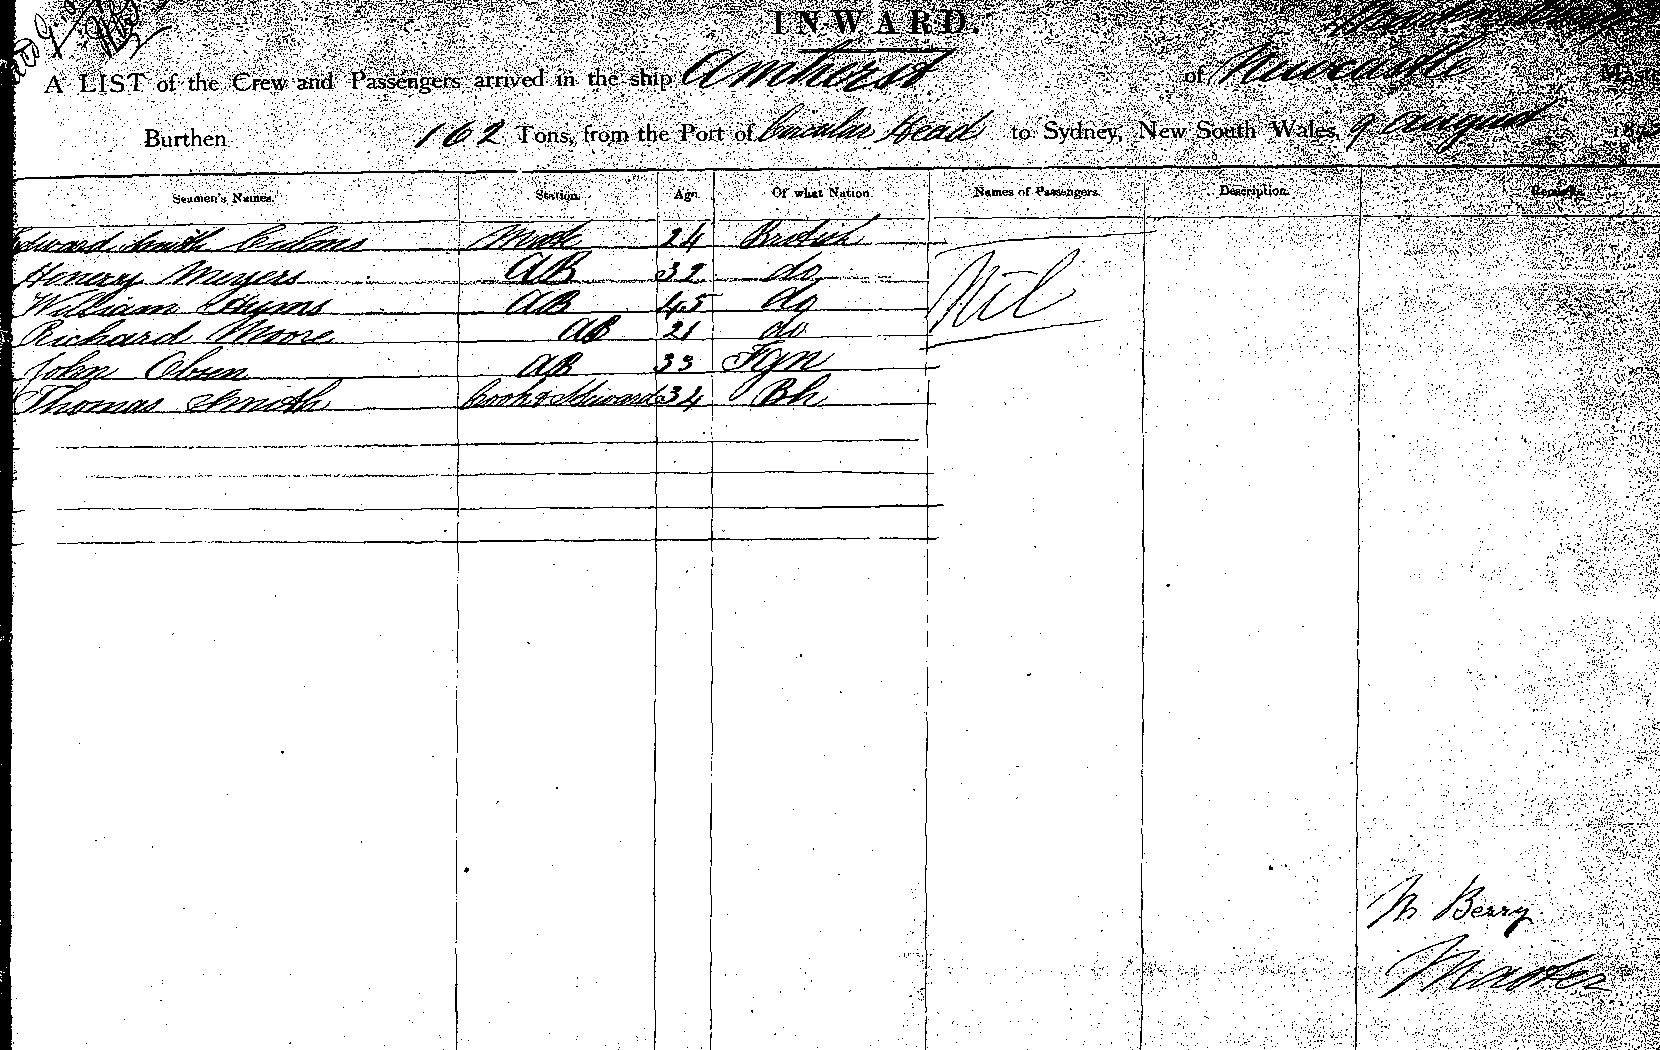 INWARD.
A LIST of the Crew and Passengers arrived in the ship Amherst of Newcastle
Burthen 162 Tons, from the Port of Circular Head to Sydney, New South Wales, 9 August
Seamen's Names. Station. Age. Of what Nation. Names of Passengers. Description. Remarks.
Edward Smith Mate 24 British
Henery Meyers AB 32 do
William AB 45 do
Richard Moore AB 21 do
John AB 33 Fgn
Thomas Smith Cook & Steward 34 Bh
Nil
M Berry
Master